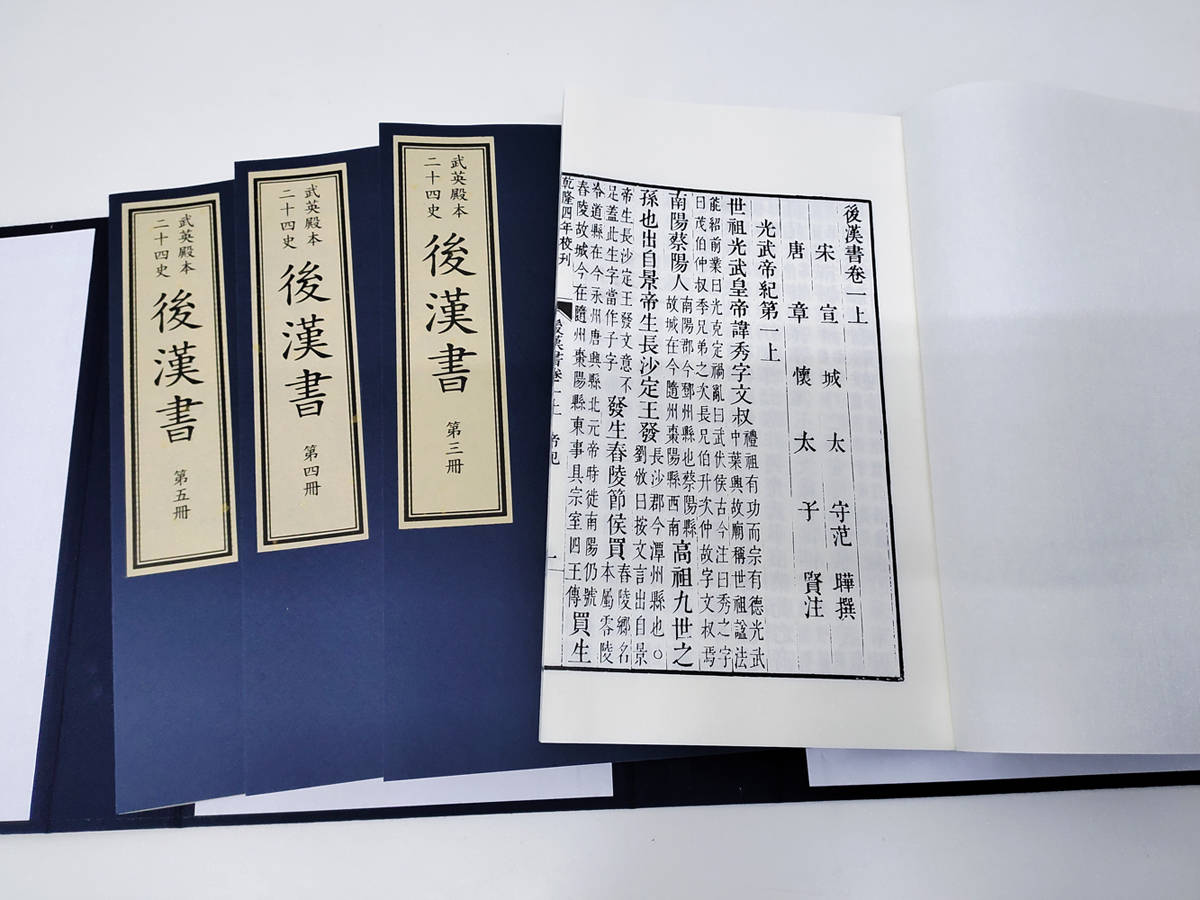 後漢書卷一上
宋宣城太守范曄撰
唐章懷太子賢注
光武帝紀第一上
世祖光武皇帝諱秀字文叔禮祖有功而宗有德光武中葉興故廟稱世祖諡法
能紹前業曰光克定禍亂曰武伏侯古今注曰秀之字曰茂伯仲叔季兄弟之次長兄伯升次仲故字文叔焉
南陽蔡陽人南陽郡今鄧州縣也蔡陽縣故城在今隨州棗陽縣西南高祖九世之
孫也出自景帝生長沙定王發長沙郡今潭州縣也○劉攽曰按文言出自景
帝生長沙定王發文意不足蓋此生字當作子字發生舂陵節侯買舂陵鄉名本屬零陵
泠道縣在今永州唐興縣北元帝時徙南陽仍號舂陵故城今在隨州棗陽縣東事具宗室四王傳買生
乾隆四年校刊
後漢書卷一上 帝紀
一
武英殿本
二十四史
後漢書
第三冊
武英殿本
二十四史
後漢書
第四冊
武英殿本
二十四史
後漢書
第五冊